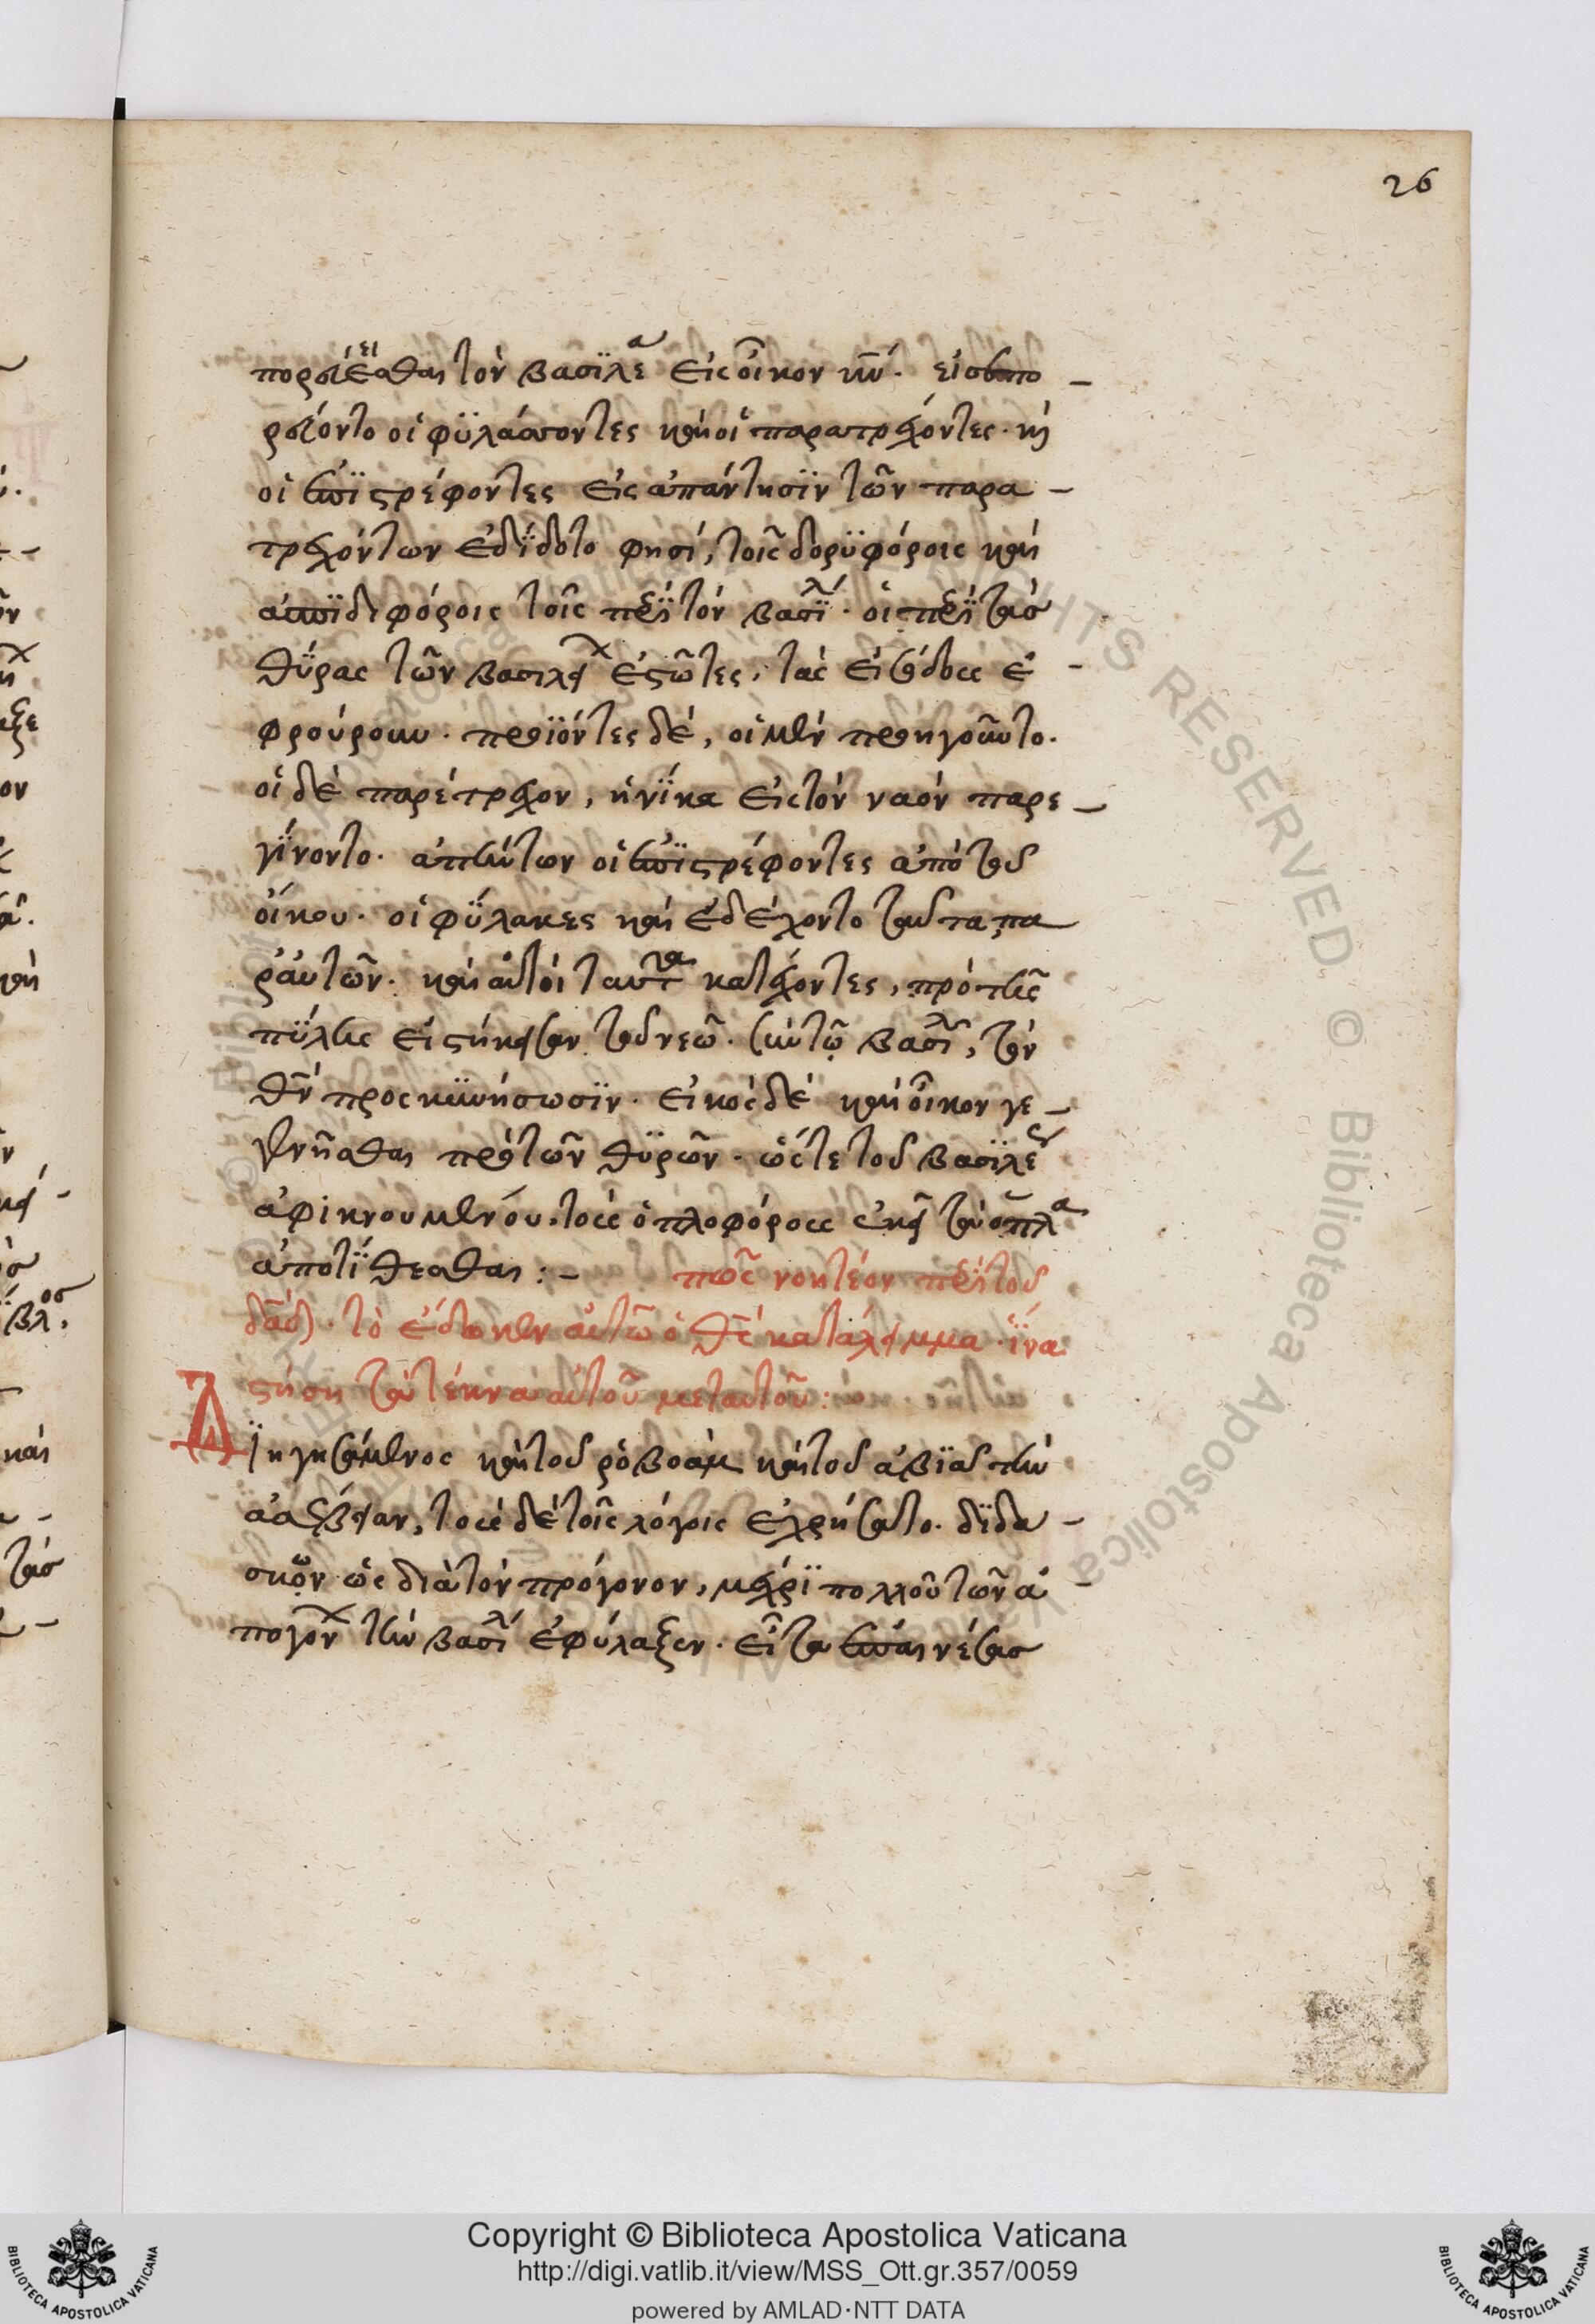 26
πορεύεσθαι τὸν βασϊλέα εἰς οἶκον κῡ. εἰσεπο –
ρεύοντο οἱ φϋλάσσοντες καὶ οἱ παρατρέχοντες· καὶ
οἱ ἐπϊστρέφοντες εἰς ἀπάντησϊν τῶν παρα –
τρεχόντων ἐδΐδοτο φησί, τοῖς δορϋφόροις καὶ
ἀσπϊδιφόροις τοῖς περὶ τὸν βασϊλέα· οἱ περὶ τὰς
θΰρας τῶν βασιλείων ἑστῶτες, τὰς εἰσόδους ἐ –
φρούρουν. προϊόντες δὲ, οἱ μὲν προηγοῦντο.
οἱ δὲ παρέτρεχον, ἡνΐκα εἰς τὸν ναὸν παρε –
γΐνοντο. ἀπήντων οἱ ἐπϊστρέφοντες ἀπὸ τοῦ
οἴκου. οἱ φΰλακες καὶ ἐδέχοντο ταῦτα πα
ρ' αὐτῶν. καὶ αὐτοὶ ταῦτα κατέχοντες, πρὸ τῆς
πΰλης εἱστήκεισαν τοῦ νεὼ. σὺν τῷ βασιλεῖ, τὸν
θν̄ προσκϋνήσωσϊν. εἰκὸς δὲ καὶ οἶκον γε –
γενῆσθαι πρὸ τῶν θϋρῶν. ὥστε τοῦ βασϊλέως
ἀφικνουμένου, τοὺς ὁπλοφόρους ἐκεῖ τὰ ὅπλα
ἀποτΐθεσθαι : – πῶς νοητέον περὶ τοῦ
δᾱδ. τὸ ἔδωκεν αὐτῶ ὁ θς̄ κατάλειμμα. ἵνα
στήση τὰ τέκνα αὐτοῦ μετ αὐτοῦ :
Δϊηγησάμενος καὶ τοῦ ῥοβοὰμ καὶ τοῦ ἀβϊοῦ τὴν
ἀσέβειαν, τούτοις δὲ τοῖς λόγοις ἐχρήσατο. δϊδα –
σκων ὡς διὰ τὸν πρόγονον, μέχρϊ πολλοῦ τῶν ἀ –
πογόνων τὴν βασιλείαν ἐφύλαξεν. εἶτα ἐπαινέσας
Copyright © Biblioteca Apostolica Vaticana
http://digi.vatlib.it/view/MSS_Ott.gr.357/0059
powered by AMLAD·NTT DATA